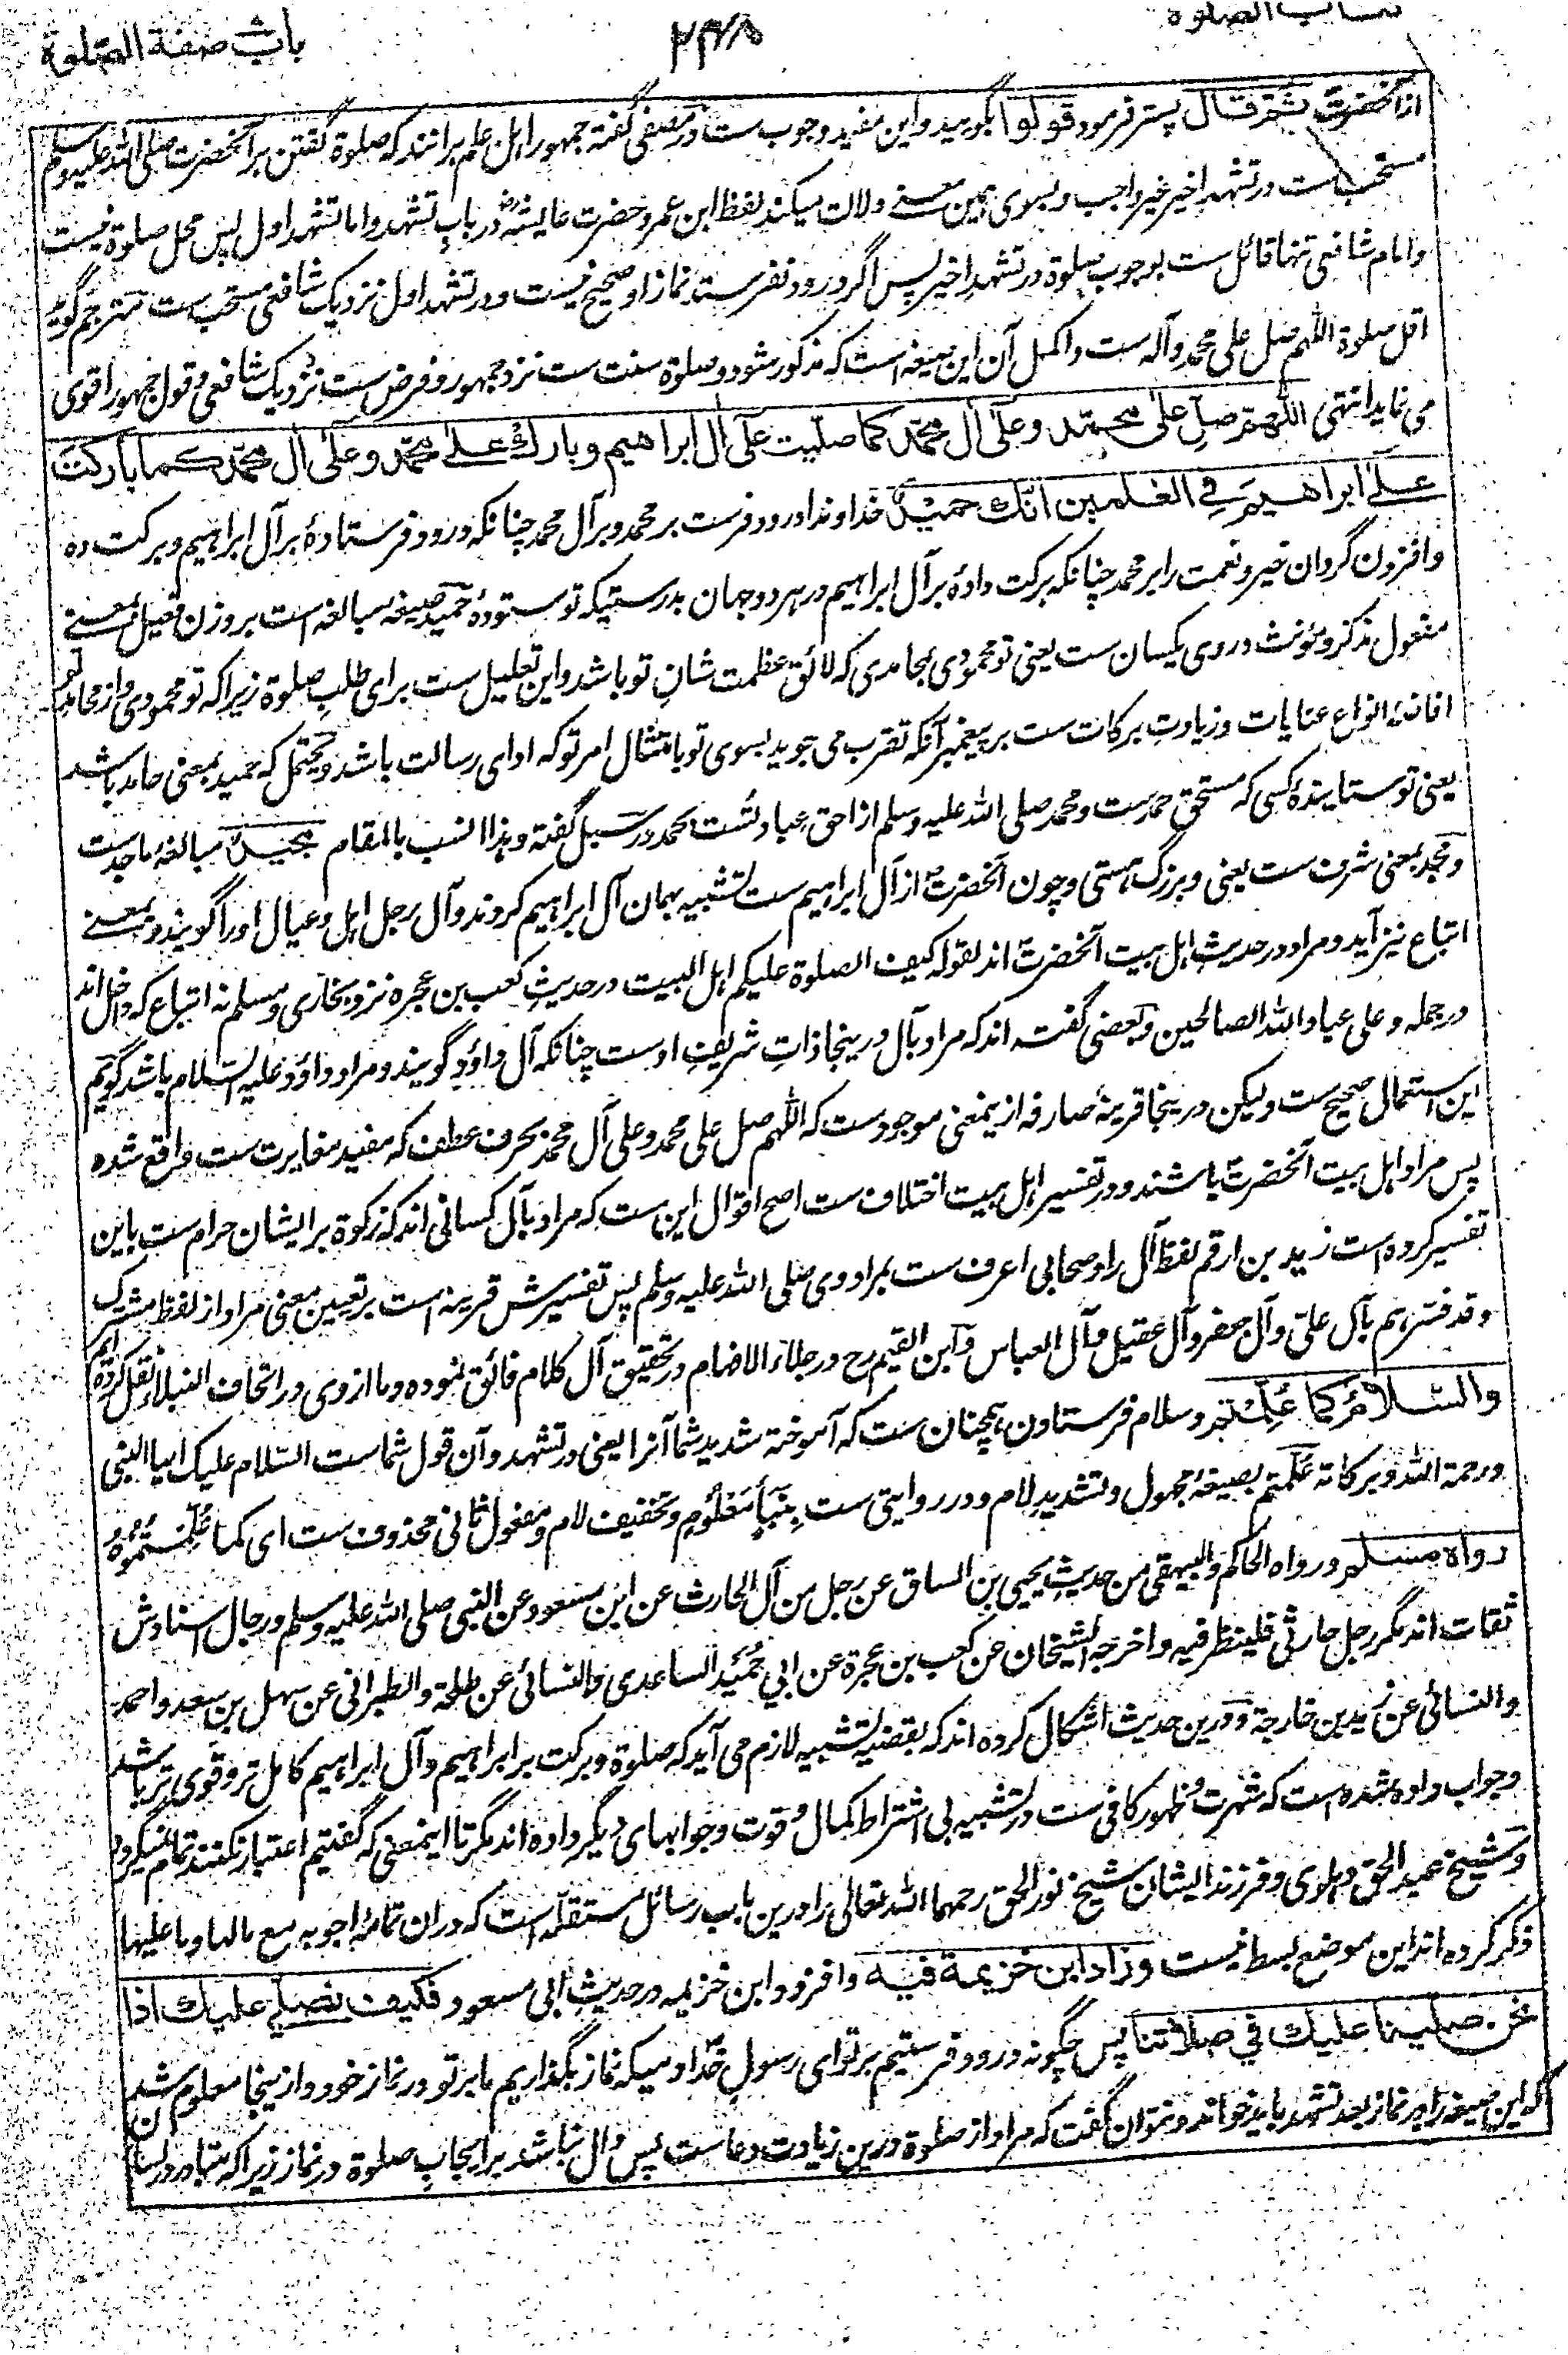 باب صفة الصلوة
۲۴۸
كتاب الصلوة
ازآنحضرت ثم قال پستر فرمود قولوا بگوئید و این مفید وجوب ست در مصفی گفته جمهور اهل علم برانند که صلوة گفتن بر آنحضرت صلی الله علیه وسلم
مستحب ست در تشهد اخیر غیر واجب و بسوی همین معنے دلالت میکند لفظ ابن عمر و حضرت عایشه رض در باب تشهد و اما تشهد اول پس محل صلوة نیست
و امام شافعی تنها قائل ست بوجوب صلوة در تشهد اخیر پس اگر درود نفرستد نماز او صحیح نیست و در تشهد اول نزدیک شافعی مستحب ست مترجم گوید
اقل صلوة اللهم صل علی محمد وآله ست و اکمل آن این صیغه است که مذکور شود و صلوة سنت ست نزد جمهور و فرض ست نزدیک شافعی و قول جمهور اقوی
می نماید انتهی اللهم صل علی محمد وعلی آل محمد کما صلیت علی آل ابراهیم و بارك علے محمد وعلی آل محمد کما بارکت
علے ابراهیم فی العلمین انك حمید خداوندا درود فرست بر محمد و بر آل محمد چنانکه درود فرستادهٔ بر آل ابراهیم و برکت ده
و افزون گردان خیر و نعمت را بر محمد چنانکه برکت دادهٔ بر آل ابراهیم در هر دو جهان بدرستیکه تو ستودهٔ حمید صیغه مبالغه است بر وزن فعیل بمعنے
مفعول مذکر و مؤنث در وی یکسان ست یعنی تو محمودی بمحامدی که لائق عظمت شانِ تو باشد و این تعلیل ست برای طلب صلوة زیرا که تو محمودی و از محامد تو
افاضهٔ انواع عنایات و زیادتِ برکات ست بر پیغمبر آنکه تقرب می جوید بسوی تو بامتثال امر تو که ادای رسالت باشد و یحتمل که حمید بمعنی حامد باشد
یعنی تو ستایندهٔ کسی که مستحق حمدست و محمد صلی الله علیه وسلم از احق عبادتست بحمد در سبل گفته و هذا انسب بالمقام مجید مبالغهٔ ماجدست
و مجد بمعنی شرف ست یعنی و بزرگ هستی و چون آنحضرت از آل ابراهیم ست تشبیه بهمان آل ابراهیم کردند و آل رجل اهل و عیال او را گویند و بمعنے
اتباع نیز آید و مراد در حدیث اهل بیت آنحضرت اند لقوله کیف الصلوة علیکم اهل البیت در حدیث کعب بن عجره نزد بخاری و مسلم نه اتباع که داخل اند
در جمله و علی عباد الله الصالحین و بعضی گفته اند که مراد بآل درینجا ذاتِ شریفِ اوست چنانکه آل داؤد گویند و مراد داؤد علیه السلام باشد گویم
این استعمال صحیح ست ولیکن درینجا قرینهٔ صارفه ازیمعنی موجودست که اللهم صل علی محمد وعلی آل محمد بحرف عطف که مفید مغایرت ست واقع شده
پس مراد اهل بیت آنحضرت باشند و در تفسیر اهل بیت اختلاف ست اصح اقوال این ست که مراد بآل کسانی اند که زکوة بر ایشان حرام ست باین
تفسیر کرده است زید بن ارقم لفظ آل را و صحابی اعرف ست بمراد وی صلی الله علیه وسلم پس تفسیرش قرینه است بر تعیین معنی مراد از لفظ مشترک
و قد فسرهم بآل علی و آل جعفر و آل عقیل و آل العباس و ابن القیم رح در جلاء الافهام در تحقیق آل کلام فائق نموده و ما از وی در اتحاف النبلاء نقل کرده ایم
والسلام کما علمتم و سلام فرستادن همچنان ست که آموخته شدید شما آنرا یعنی در تشهد و آن قول شماست السلام علیک ایها النبی
ورحمة الله وبرکاته علمتم بصیغهٔ مجهول و تشدید لام و در روایتی ست ببناءِ معلوم و تخفیف لام و مفعول ثانی محذوف ست ای کما علمتموه
رواه مسلم و رواه الحاکم والبیهقی من حدیث یحیی بن الساق عن رجل من آل الحارث عن ابن مسعود عن النبی صلی الله علیه وسلم و رجال اسنادش
ثقات اند مگر رجل حارثی فلینظر فیه و اخرجه الشیخان عن کعب بن عجرة عن ابی حمید الساعدی والنسائی عن طلحة والطبرانی عن سهل بن سعد و احمد
والنسائی عن زید بن خارجة و درین حدیث اشکال کرده اند که بقضیهٔ تشبیه لازم می آید که صلوة و برکت بر ابراهیم و آل ابراهیم کامل تر و قوی تر باشد
و جواب داده شده است که شهرت و ظهور کافی ست در تشبیه بی اشتراط کمال و قوت و جوابهای دیگر داده اند مگر تا اینمعنی که گفتیم اعتبار نکنند تمام نمیگردد
و شیخ عبد الحق دهلوی و فرزند ایشان شیخ نور الحق رحمهما الله تعالی را درین باب رسائل مستقله است که دران تمامهٔ اجوبه مع مالها و ما علیها
ذکر کرده اند این موضع بسط نیست وزاد ابن خزیمة فیه و افزود ابن خزیمه در حدیث ابی مسعود فکیف نصلی علیك اذا
نحن صلینا علیك فی صلاتنا پس چگونه درود فرستیم بر تو ای رسول خدا وقتیکه نماز بگذاریم ما بر تو در نماز خود و ازینجا معلوم شد
که این صیغه را در نماز بعد تشهد باید خواند و نتوان گفت که مراد از صلوة درین زیادت دعاست پس دال نباشد بر ایجاب صلوة در نماز زیرا که متبادر در لسان